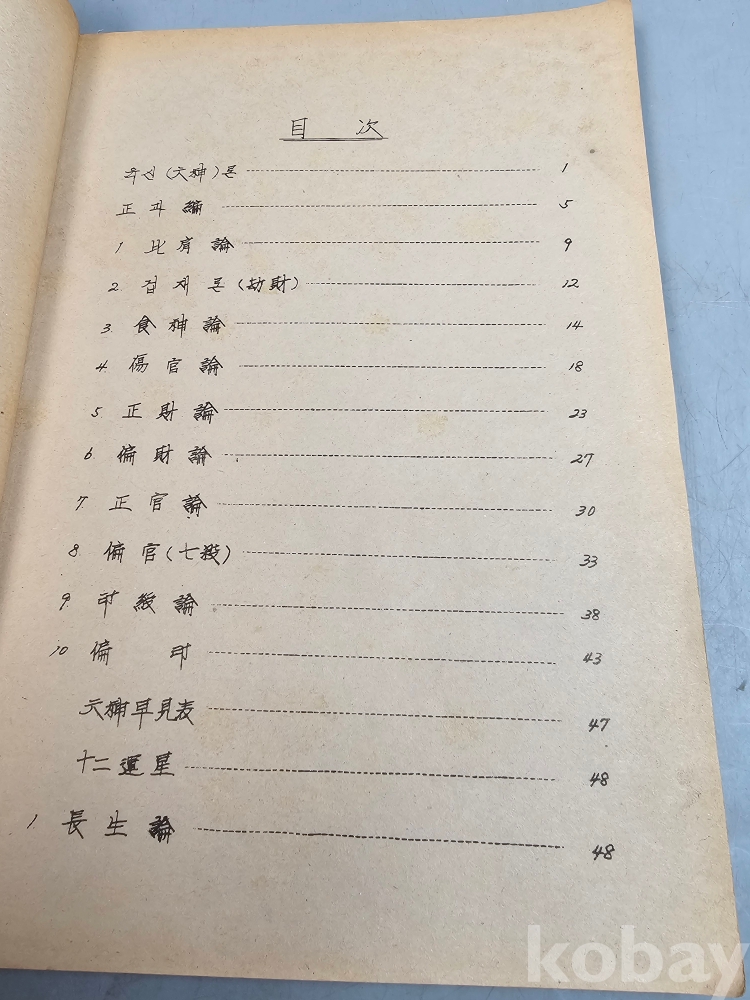 目 次
육신(六神)론 1
正파編 5
1 比肩論 9
2. 겁재론(劫財) 12
3. 食神論 14
4. 傷官論 18
5 正財論 23
6 偏財論 27
7. 正官論 30
8. 偏官(七殺) 33
9. 印綬論 38
10 偏 印 43
六神早見表 47
十二運星 48
1 長生論 48
kobay